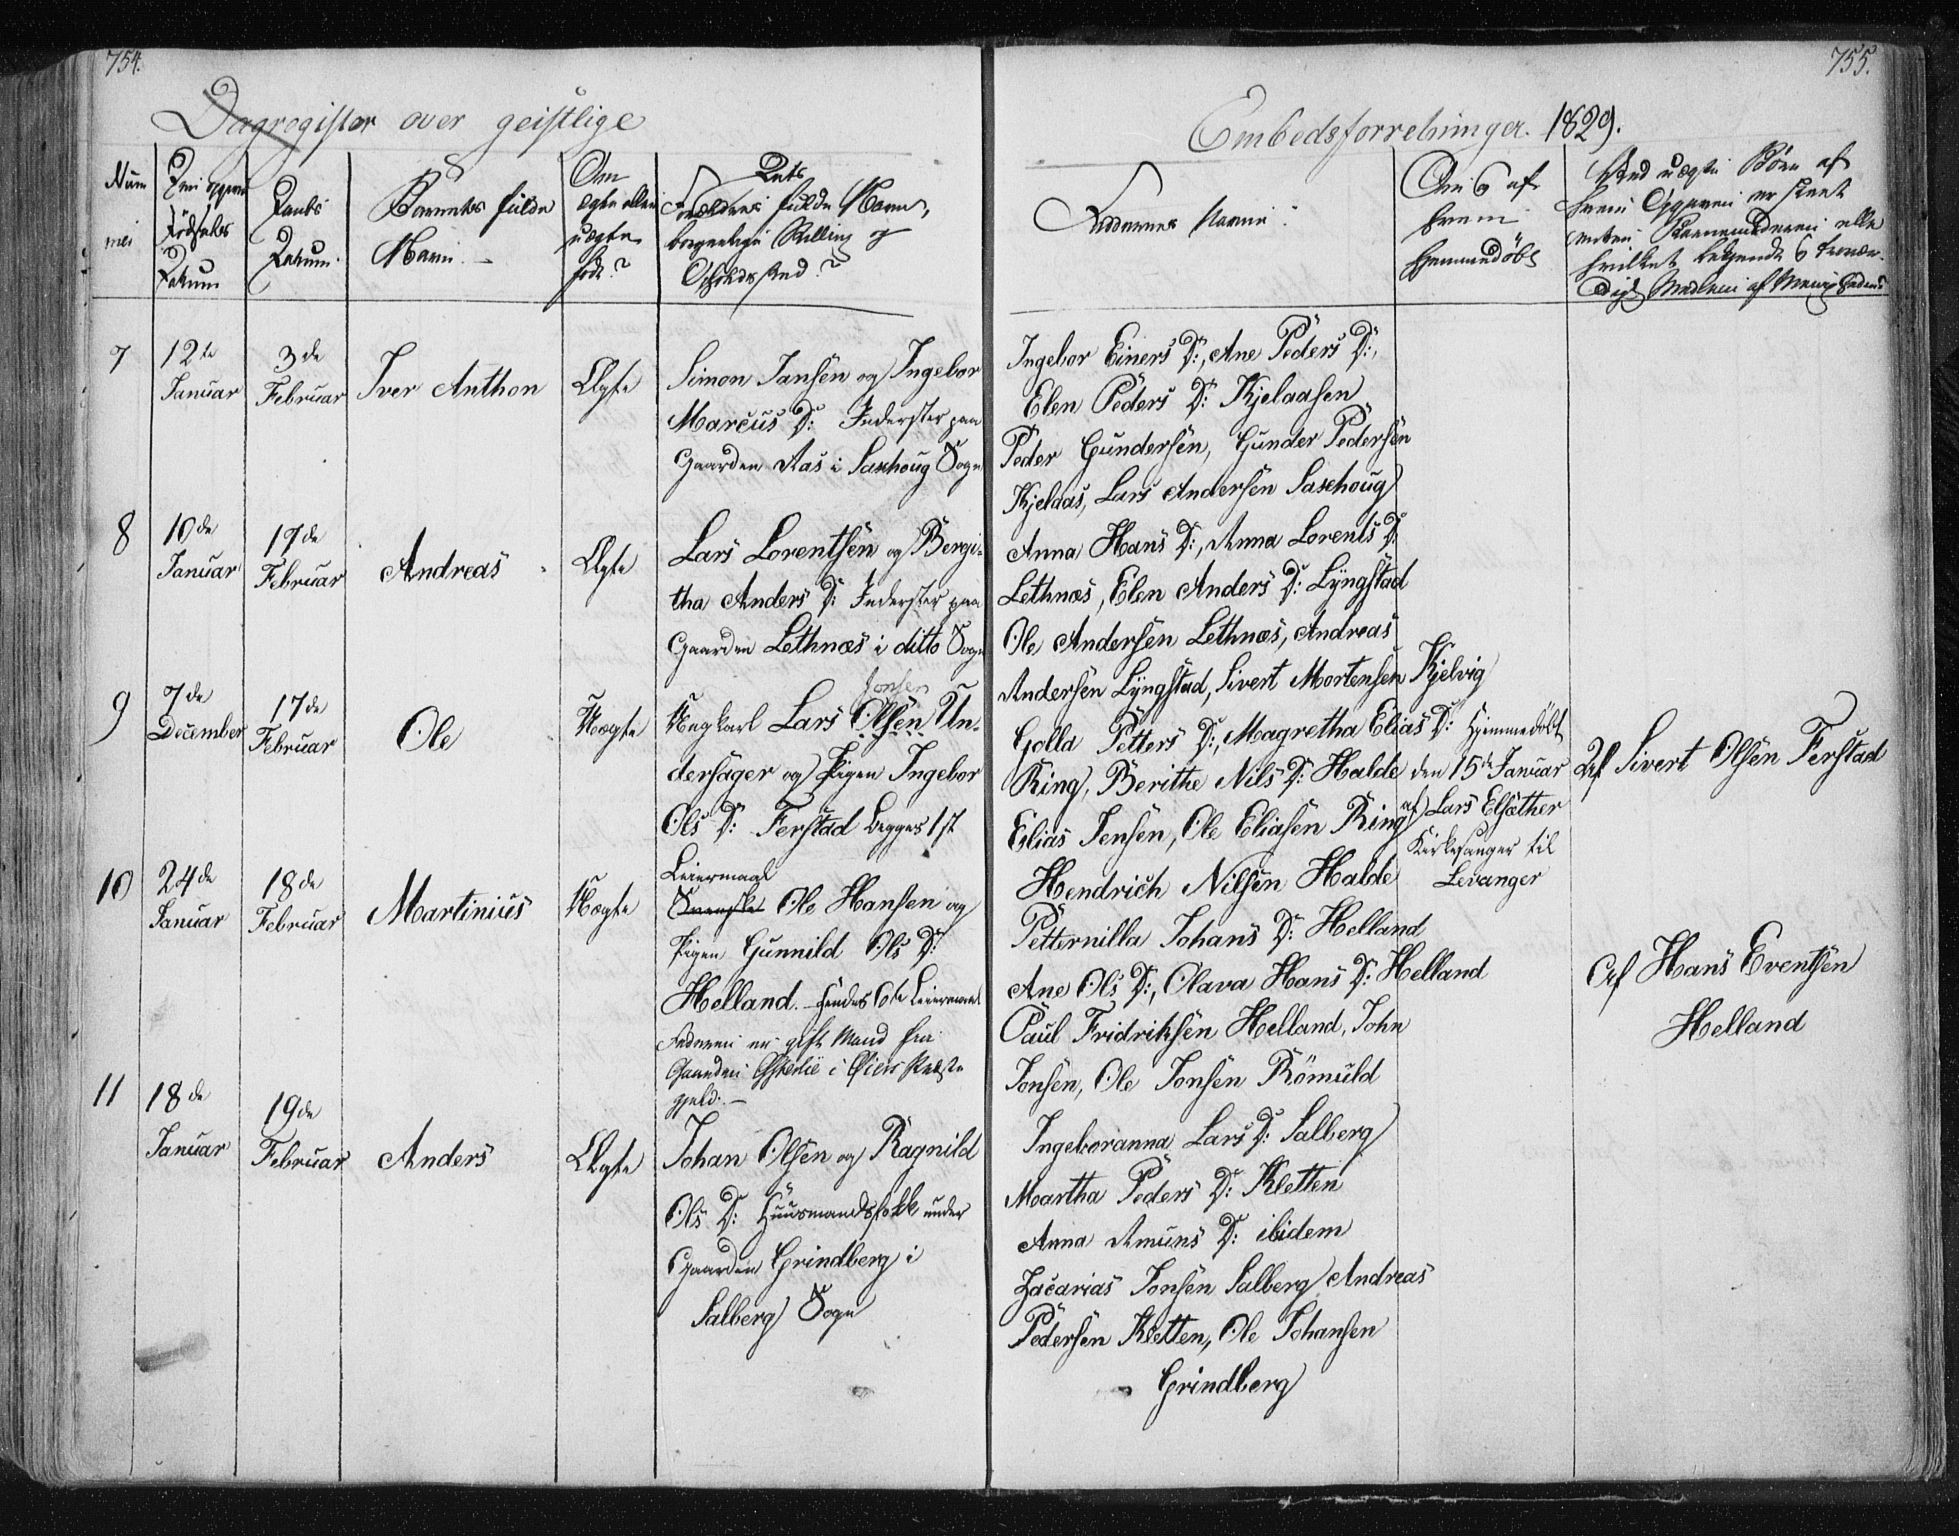 754.
755.
Dagregister over geistlige
Embedsforretninger. 1829.
Num
mer
Fødsels
Datum
Daabs
Datum.
Barnets fulde
Navn.
Om
ægte eller
uægte
født?
Dets
Forældres fulde Navn,
borgerlige Stilling og
Opholdssted?
Faddernes Navne.
Om og af
hvem
hjemmedøbt
Ved uægte Børn af
hvem Opgaven er skeet
enten Barnemoderen eller
hvilket
7
12te
Januar
3de
Februar
Iver Anthon
Ægte
Simon Jansen og Ingebor
Marcus D: Inderster paa
Gaarden Aas i Saxhoug Sogn
Ingebor Einers D:, Ane Peders D:,
Elen Peders D: Kjelaasen
Peder Gundersen, Gunder Pedersen
Kjelaas, Lars Andersen Saxhoug
8
10de
Januar
17de
Februar
Andreas
Ægte
Lars Lorentsen og Bergi-
tha Anders D: Inderster paa
Gaarden Lethnæs i ditto Sogn
Anna Hans D:, Anna Lorents D:
Lethnæs, Elen Anders D: Lyngstad
Ole Andersen Lethnæs, Andreas
Andersen Lyngstad, Sivert Mortensen Kjelvig
9
7de
December
17de
Februar
Ole
Uægte
Jonsen
Ungkarl Lars Olsen Un-
dersager og Pigen Ingebor
Ols D: Ferstad begges 1st
Leiermaal
Golla Petters D:, Magretha Elias D:
Ring, Berithe Nils D: Halde
Elias Jensen, Ole Eliasen Ring
Hendrich Nilsen Halde
Hjemmedøbt
den 15de Januar
af Lars Elsæther
Kirkesanger til
Levanger
Af Sivert Olsen Ferstad
10
24de
Januar
18de
Februar
Martinius
Uægte
Svenske Ole Hansen og
Pigen Gunnild Ols D:
Helland. Hendes 1ste Leiermaal
Faderen er gift Mand fra
Gaarden Østerlie i Øiers Præste
gjeld.
Petternilla Johans D: Helland
Ane Ols D:, Olava Hans D: Helland
Paul Fridriksen Helland, John
Jonsen, Ole Jonsen Römuld
Af Hans Eventsen
Helland
11
18de
Januar
19de
Februar
Anders
Ægte
Johan Olsen og Ragnild
Ols D: Huusmandsfolk under
Gaarden Grindberg i
Salberg Sogn
Ingeboranna Lars D: Salberg
Martha Peders D: Kletten
Anna Amuns D: ibidem
Zacarias Jonsen Salberg Andreas
Pedersen Kletten, Ole Johansen
Grindberg